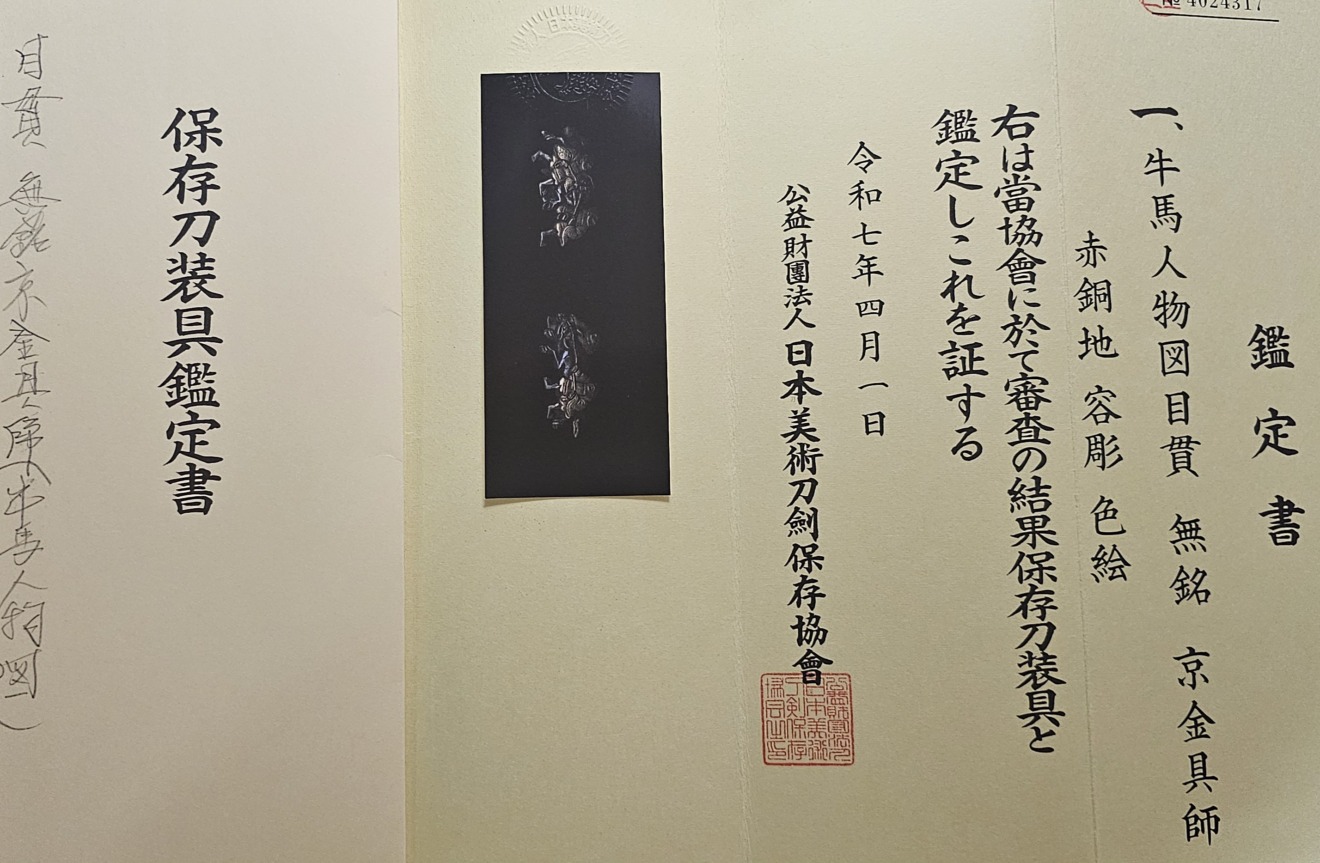 № 4024317
鑑定書
一、牛馬人物図目貫 無銘 京金具師
赤銅地 容彫 色絵
右は當協會に於て審査の結果保存刀装具と
鑑定しこれを証する
令和七年四月一日
公益財團法人 日本美術刀劍保存協會
保存刀装具鑑定書
目貫 無銘京金具師(牛馬人物図)